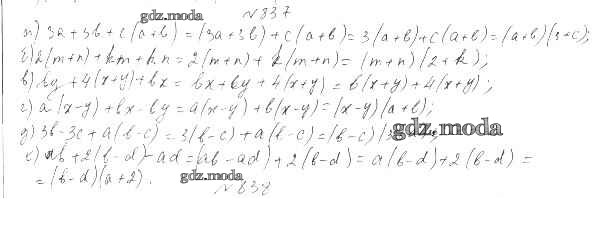 gdz.moda
№ 837
а) 3a + 3b + c(a+b) = (3a+3b) + c(a+b) = 3(a+b) + c(a+b) = (a+b)(3+c);
б) 2(m+n) + km + kn = 2(m+n) + k(m+n) = (m+n)(2+k);
в) by + 4(x+y) + bx = bx + by + 4(x+y) = b(x+y) + 4(x+y);
г) a(x-y) + bx - by = a(x-y) + b(x-y) = (x-y)(a+b);
д) 3b - 3c + a(b-c) = 3(b-c) + a(b-c) = (b-c)(3
gdz.moda
е) ab + 2(b-d) - ad = (ab - ad) + 2(b-d) = a(b-d) + 2(b-d) =
= (b-d)(a+2).
gdz.moda
№ 838